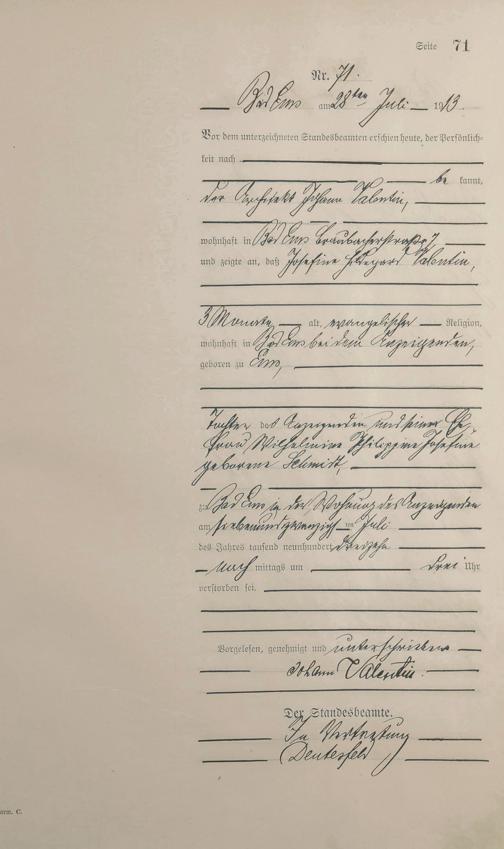 Seite 71
Nr. 71.
Bad Ems am 28ten Juli 1913.
Vor dem unterzeichneten Standesbeamten erschien heute, der Persönlich-
keit nach
be kannt,
der Architekt Johann Valentin,
wohnhaft in Bad Ems Braubacherstraße 7,
und zeigte an, daß Josefine Hildegard Valentin,
3 Monate alt, evangelischer Religion,
wohnhaft in Bad Ems bei dem Anzeigenden,
geboren zu Ems,
Tochter des Anzeigenden und seiner Ehe-
frau Wilhelmine Philippine Josefine
geborene Schmidt,
zu Bad Ems in der Wohnung des Anzeigenden
am siebenundzwanzigsten Juli
des Jahres tausend neunhundert dreizehn
nach mittags um drei Uhr
verstorben sei.
Vorgelesen, genehmigt und unterschrieben
Johann Valentin.
Der Standesbeamte.
In Vertretung
orm. C.